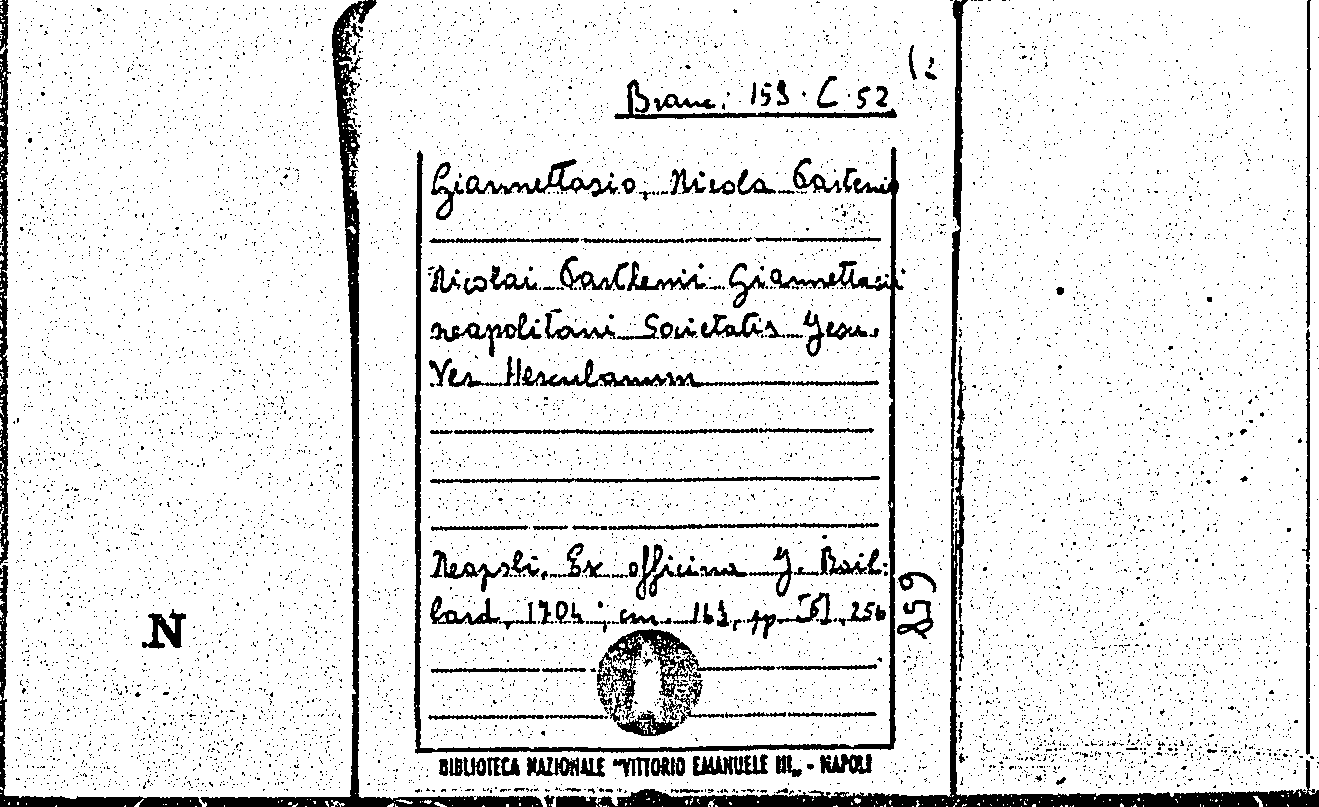 (2
Branc. 153. C. 52
Giannettasio, Nicola Partenio
Nicolai Parthenii Giannettasii
neapolitani Societatis Jesu.
Ver Herculanum
Neapoli, Ex officina J. Rail-
lard, 1704; cm. 16½, pp. [6], 256
259
N
BIBLIOTECA NAZIONALE "VITTORIO EMANUELE III„ - NAPOLI